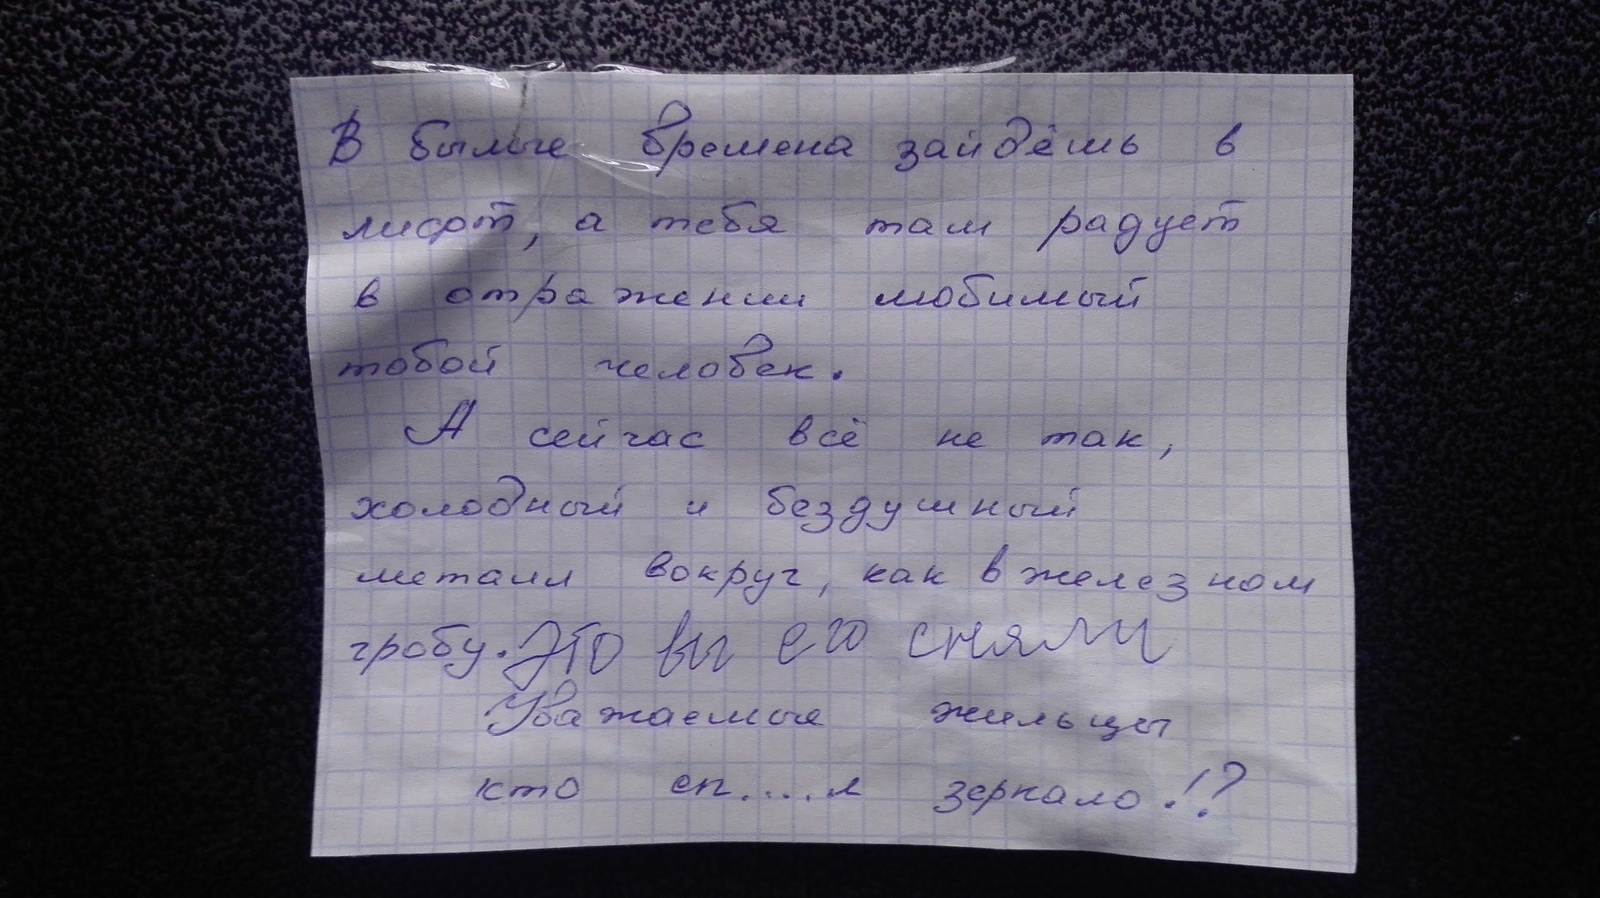 В былые времена зайдёшь в
лифт, а тебя там радует
в отражении любимый
тобой человек.
А сейчас всё не так,
холодный и бездушный
металл вокруг, как в железном
гробу. Это вы его сняли
Уважаемые жильцы
кто сп....л зеркало!?